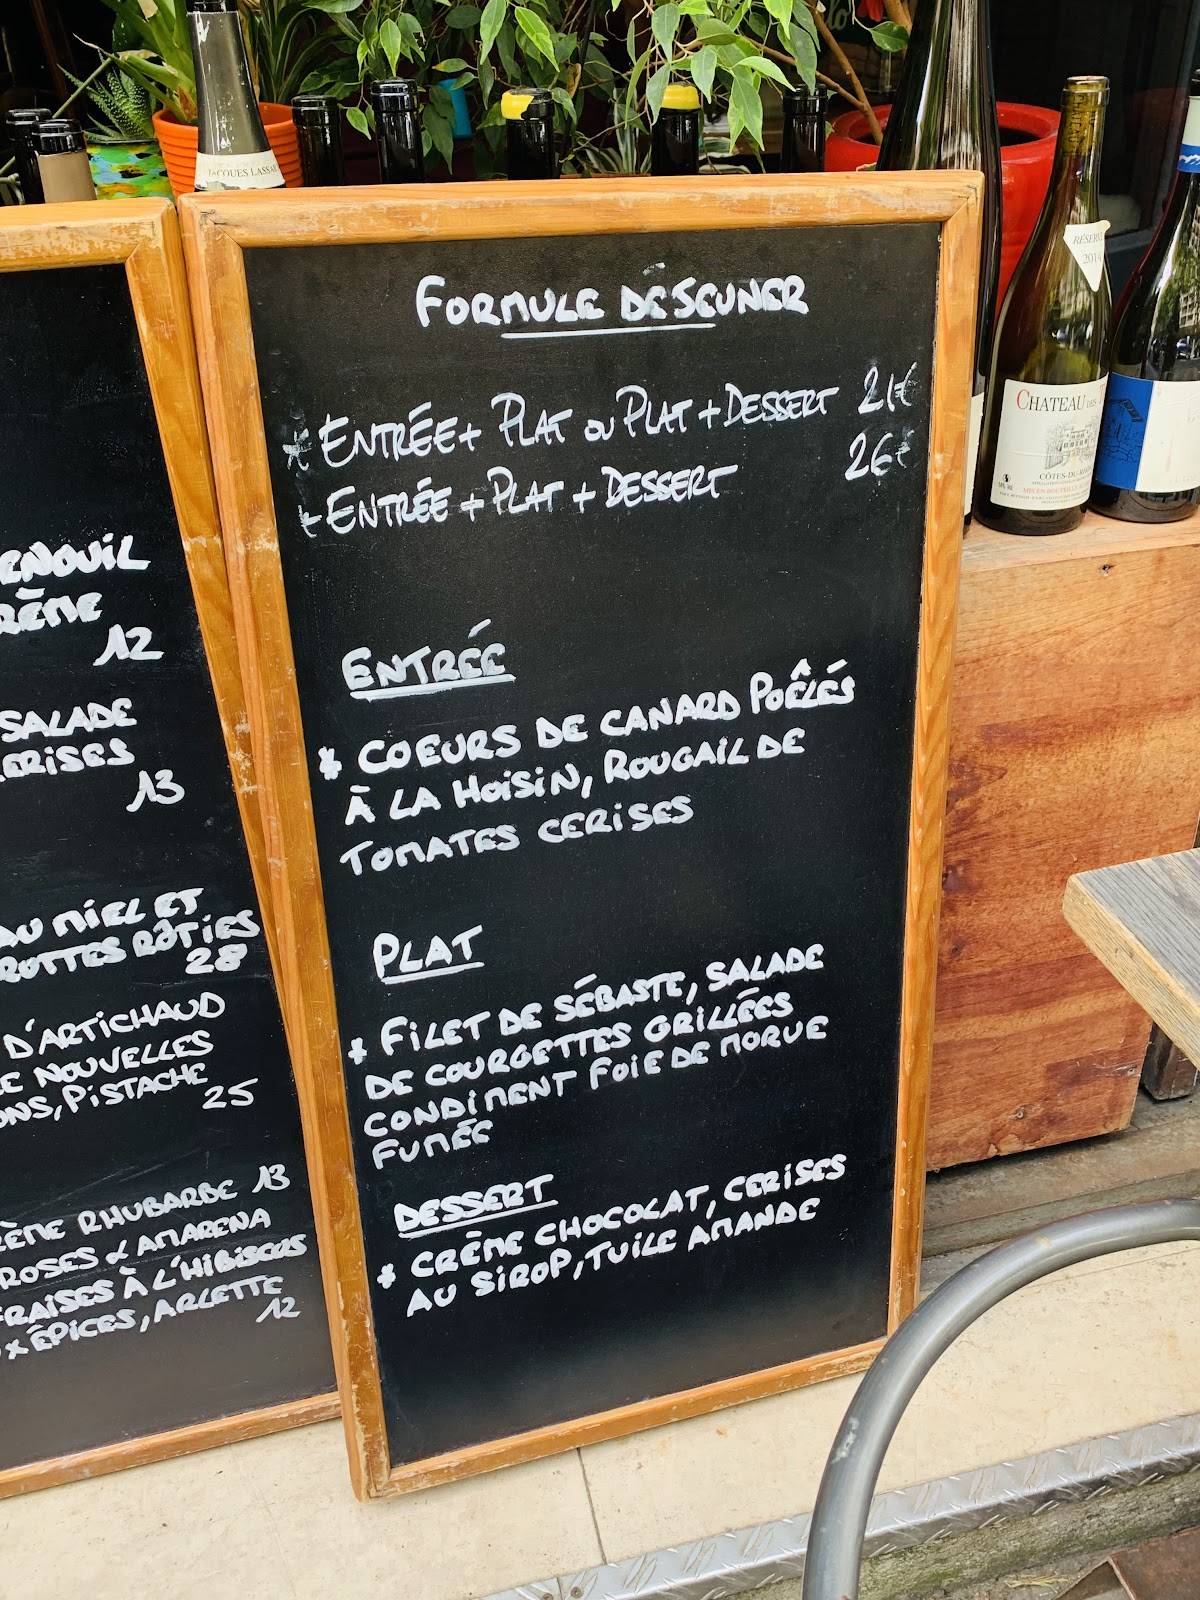 JACQUES LASSAI
RÉSERVE
2014
CHATEAU DES
CÔTES-DU-RHÔNE
ENOUIL
RÈME
12
SALADE
CERISES
13
AU MIEL ET
ROTTES RÔTIES
28
D'ARTICHAUD
NOUVELLES
ONS, PISTACHE
25
RÈME RHUBARBE 13
ROSES & AMARENA
FRAISES À L'HIBISCUS
X ÉPICES, ARLETTE
12
FORMULE DÉJEUNER
* ENTRÉE + PLAT OU PLAT + DESSERT 21€
* ENTRÉE + PLAT + DESSERT 26€
ENTRÉE
* COEURS DE CANARD POÊLÉS
À LA HOISIN, ROUGAIL DE
TOMATES CERISES
PLAT
* FILET DE SÉBASTE, SALADE
DE COURGETTES GRILLÉES
CONDIMENT FOIE DE MORUE
FUMÉE
DESSERT
* CRÈME CHOCOLAT, CERISES
AU SIROP, TUILE AMANDE